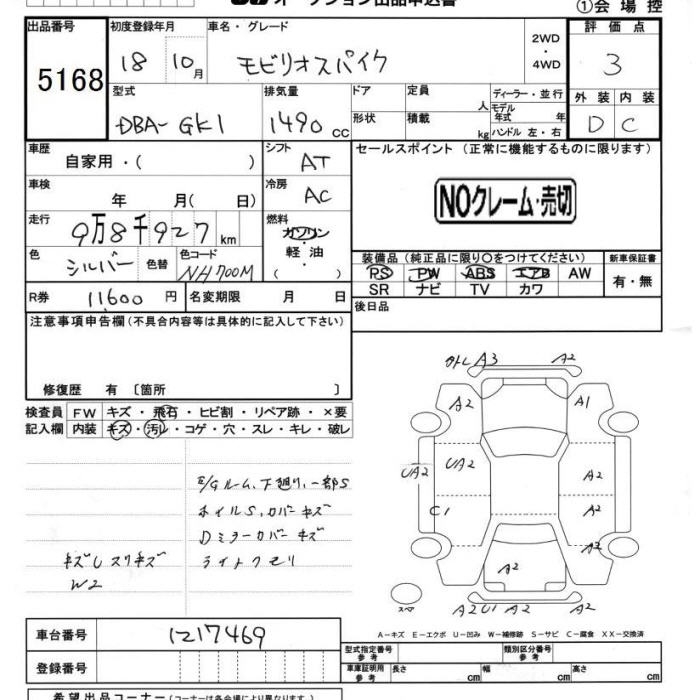 オークション出品申込書
①会場控
出品番号 初度登録年月 車名・グレード 評価点
5168 18 10月 モビリオスパイク 2WD ・ 4WD 3
型式 排気量 ドア 定員 人 ディーラー・並行 外装 内装
DBA-GK1 1490 cc 形状 積載 kg モデル年式 年 ハンドル 左・右 D C
車歴 自家用・( ) シフト AT セールスポイント (正常に機能するものに限ります)
車検 年 月( 日) 冷房 AC NOクレーム・売切
走行 9万8千927 km 燃料 ガソリン・軽油 ( )
色 シルバー 色替 色コード NH700M
装備品 (純正品に限り〇をつけてください) 新車保証書
PS PW ABS エアB AW 有・無
SR ナビ TV カワ
R券 11600 円 名変期限 月 日 後日品
注意事項申告欄 (不具合内容等は具体的に記入して下さい)
修復歴 有 〔箇所 〕
検査員 FW キズ・飛石・ヒビ割・リペア跡・×要
記入欄 内装 キズ・汚レ・コゲ・穴・スレ・キレ・破レ
E/Gルーム、下廻り、一部S
ホイルS、カバーキズ
Dミラーカバーキズ
キズUスリキズ ライトクモリ
W2
外トレ A3 A2
A2 A1
UA2 UA2 A2
C1 A2
A2
A2
スペア A2 U1 A2 A2
A-キズ E-エクボ U-凹み W-補修跡 S-サビ C-腐食 XX-交換済
車台番号 1217469
型式指定番号 参考 類別区分番号 参考
登録番号 車庫証明用 参考 長さ cm 幅 cm 高さ cm
希望出品コーナー (コーナーは各会場により異なります。)